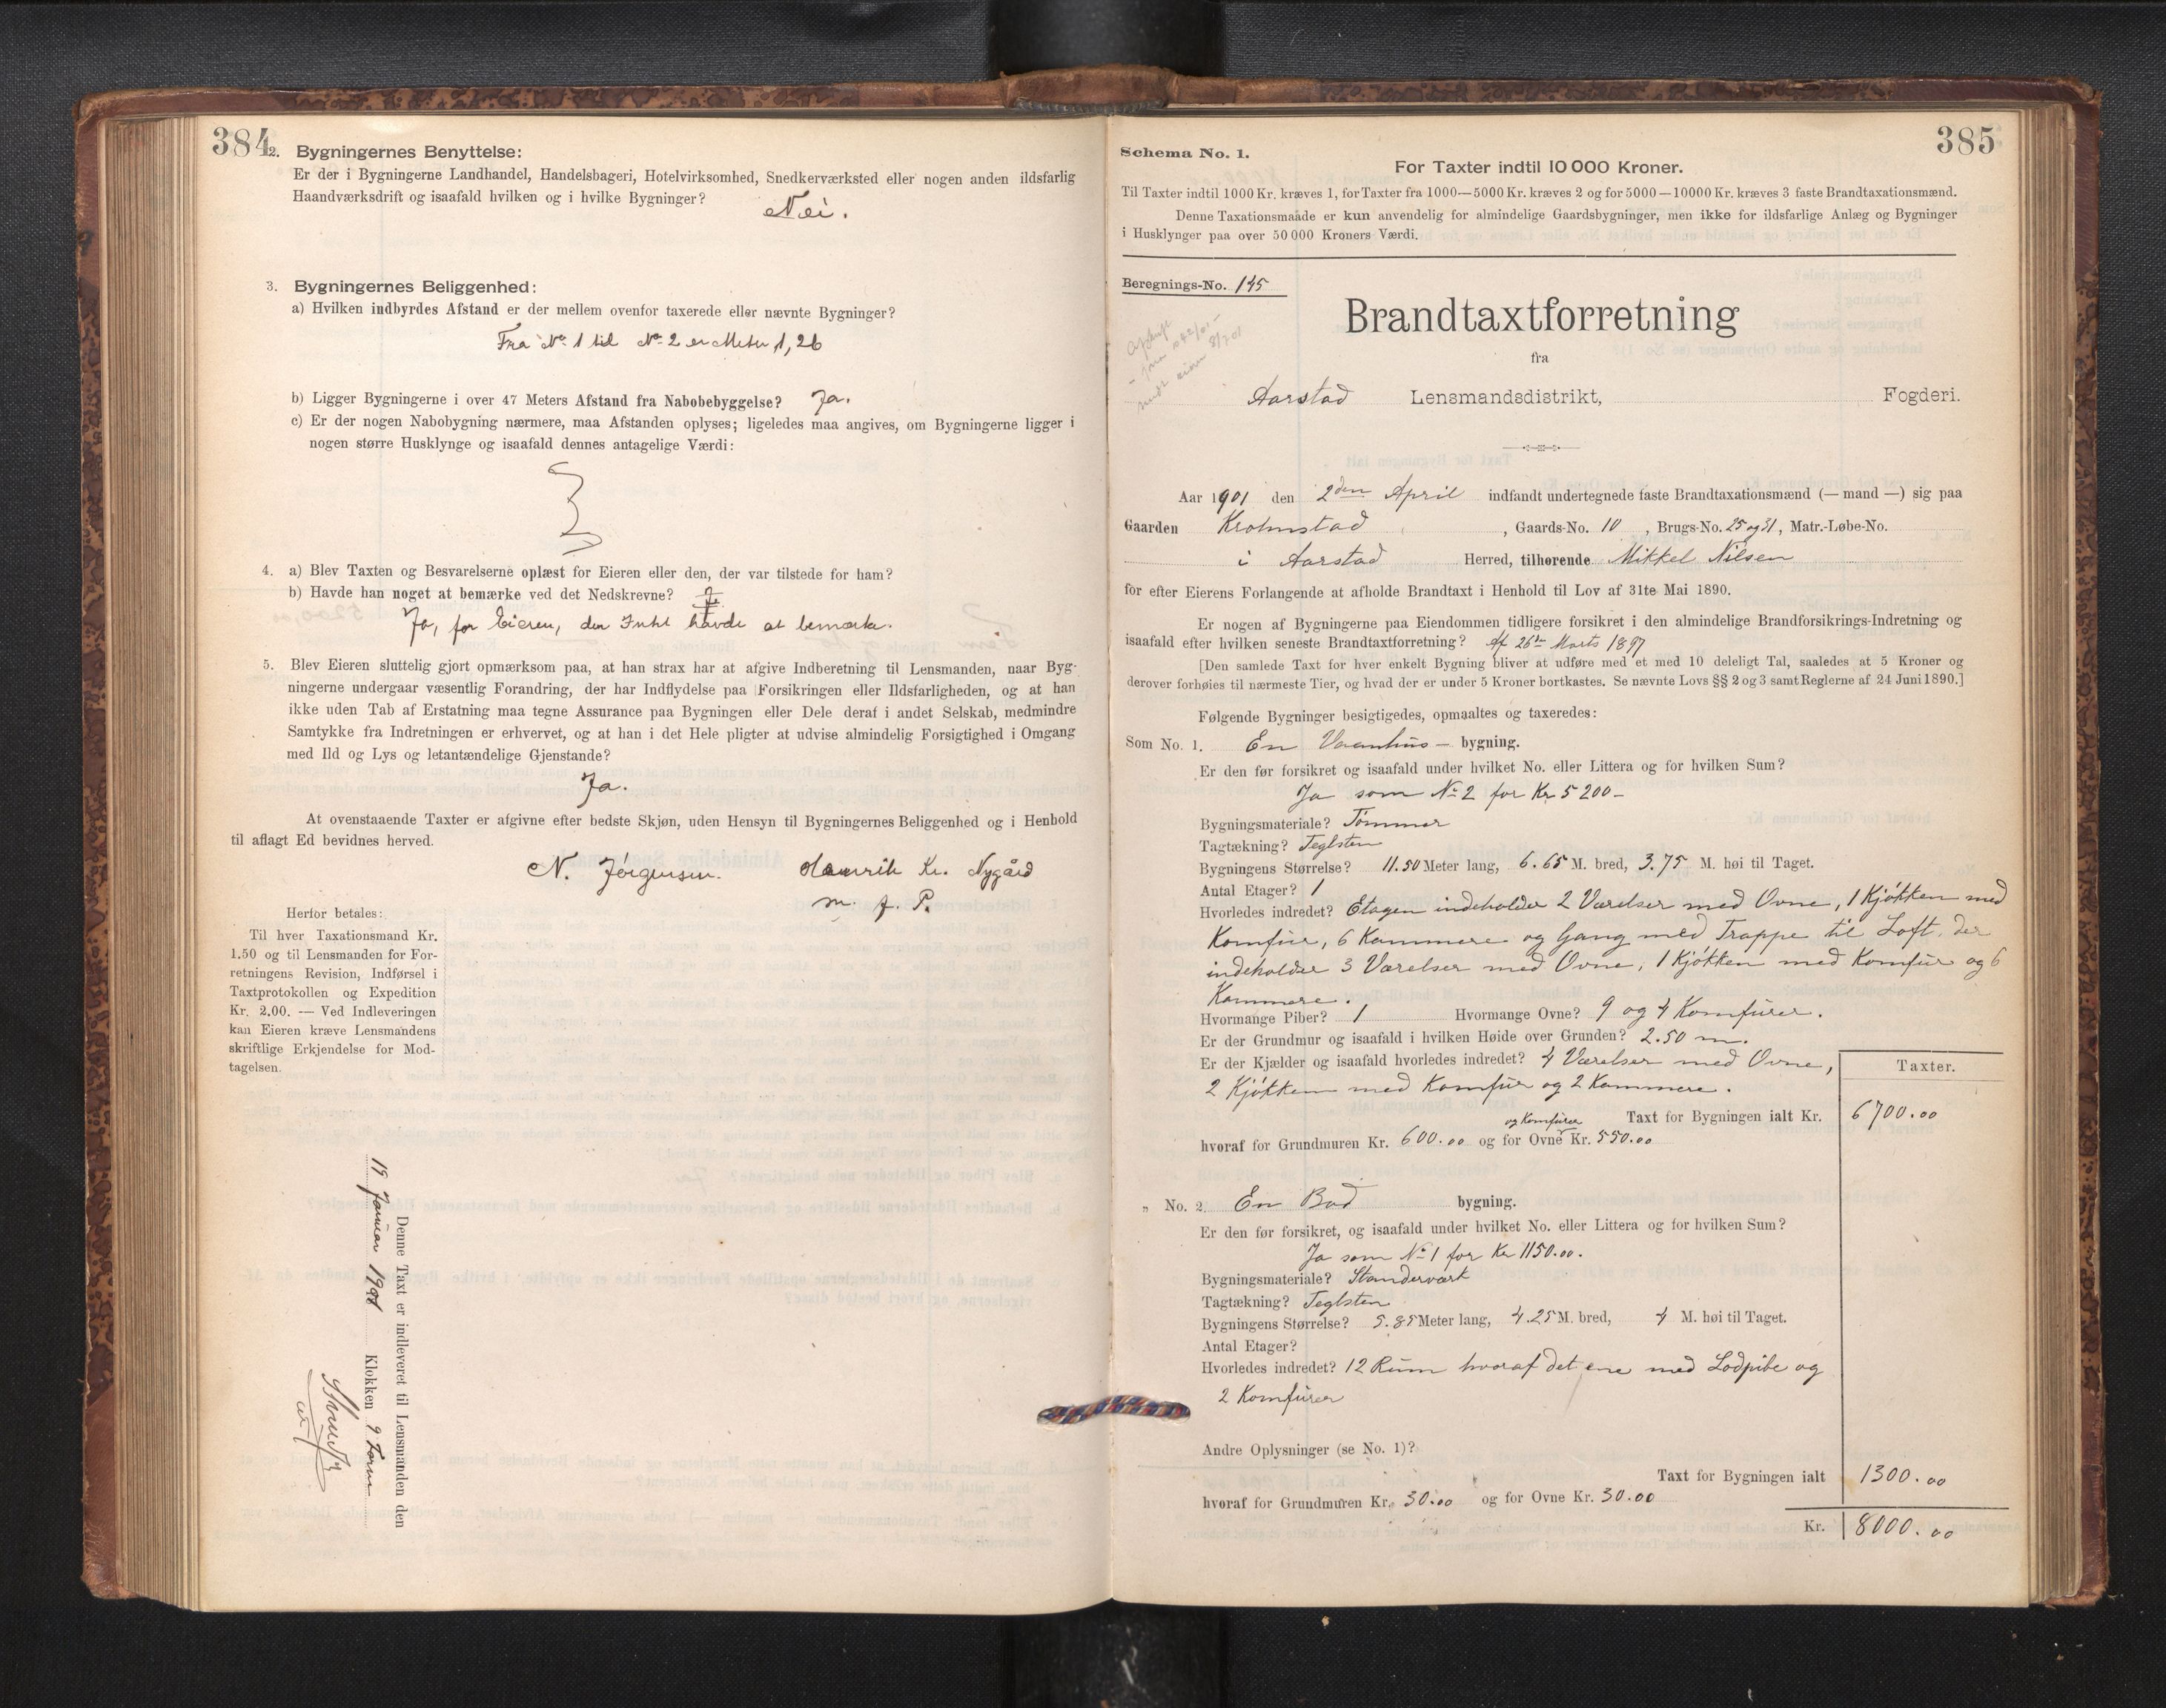 384
2. Bygningernes Benyttelse:
Er der i Bygningerne Landhandel, Handelsbageri, Hotelvirksomhed, Snedkerværksted eller nogen anden ildsfarlig
Haandværksdrift og isaafald hvilken og i hvilke Bygninger? Nei.
3. Bygningernes Beliggenhed:
a) Hvilken indbyrdes Afstand er der mellem ovenfor taxerede eller nævnte Bygninger?
Fra No 1 til No 2 er Meter 1,26
b) Ligger Bygningerne i over 47 Meters Afstand fra Nabobebyggelse? Ja.
c) Er der nogen Nabobygning nærmere, maa Afstanden oplyses; ligeledes maa angives, om Bygningerne ligger i
nogen større Husklynge og isaafald dennes antagelige Værdi:
4. a) Blev Taxten og Besvarelserne oplæst for Eieren eller den, der var tilstede for ham?
b) Havde han noget at bemærke ved det Nedskrevne?
Ja, for Eieren, der Intet havde at bemærke.
5. Blev Eieren sluttelig gjort opmærksom paa, at han strax har at afgive Indberetning til Lensmanden, naar Byg-
ningerne undergaar væsentlig Forandring, der har Indflydelse paa Forsikringen eller Ildsfarligheden, og at han
ikke uden Tab af Erstatning maa tegne Assurance paa Bygningen eller Dele deraf i andet Selskab, medmindre
Samtykke fra Indretningen er erhvervet, og at han i det Hele pligter at udvise almindelig Forsigtighed i Omgang
med Ild og Lys og letantændelige Gjenstande?
Ja.
At ovenstaaende Taxter er afgivne efter bedste Skjøn, uden Hensyn til Bygningernes Beliggenhed og i Henhold
til aflagt Ed bevidnes herved.
N. Jörgensen. Henrik Kr. Nygård
m. f. P.
Herfor betales:
Til hver Taxationsmand Kr.
1.50 og til Lensmanden for For-
retningens Revision, Indførsel i
Taxtprotokollen og Expedition
Kr. 2.00. — Ved Indleveringen
kan Eieren kræve Lensmandens
skriftlige Erkjendelse for Mod-
tagelsen.
Denne Taxt er indleveret til Lensmanden den
19 Januar 1901 Klokken 9 Form
385
Schema No. 1.
For Taxter indtil 10 000 Kroner.
Til Taxter indtil 1000 Kr. kræves 1, for Taxter fra 1000—5000 Kr. kræves 2 og for 5000—10000 Kr. kræves 3 faste Brandtaxationsmænd.
Denne Taxationsmaade er kun anvendelig for almindelige Gaardsbygninger, men ikke for ildsfarlige Anlæg og Bygninger
i Husklynger paa over 50 000 Kroners Værdi.
Beregnings-No. 145
Brandtaxtforretning
fra
Aarstad Lensmandsdistrikt, Fogderi.
Aar 1901 den 2den April indfandt undertegnede faste Brandtaxationsmænd (— mand —) sig paa
Gaarden Krohnstad, Gaards-No. 10, Brugs-No. 25 og 31, Matr.-Løbe-No.
i Aarstad Herred, tilhørende Mikkel Nilsen
for efter Eierens Forlangende at afholde Brandtaxt i Henhold til Lov af 31te Mai 1890.
Er nogen af Bygningerne paa Eiendommen tidligere forsikret i den almindelige Brandforsikrings-Indretning og
isaafald efter hvilken seneste Brandtaxtforretning? Af 26de Marts 1897
[Den samlede Taxt for hver enkelt Bygning bliver at udføre med et med 10 deleligt Tal, saaledes at 5 Kroner og
derover forhøies til nærmeste Tier, og hvad der er under 5 Kroner bortkastes. Se nævnte Lovs §§ 2 og 3 samt Reglerne af 24 Juni 1890.]
Følgende Bygninger besigtigedes, opmaaltes og taxeredes:
Som No. 1. En Vaanhus — bygning.
Er den før forsikret og isaafald under hvilket No. eller Littera og for hvilken Sum?
Ja som No 2 for Kr 5200 –
Bygningsmateriale? Tømmer
Tagtækning? Teglsten
Bygningens Størrelse? 11.50 Meter lang, 6.65 M. bred, 3.75 M. høi til Taget.
Antal Etager? 1
Hvorledes indredet? Etagen indeholder 2 Værelser med Ovne, 1 Kjøkken med
Komfur, 6 Kammere og Gang med Trappe til Loft, der
indeholder 3 Værelser med Ovne, 1 Kjøkken med Komfur og 6
Kammere.
Hvormange Piber? 1 Hvormange Ovne? 9 og 4 Komfurer.
Er der Grundmur og isaafald i hvilken Høide over Grunden? 2.50 m.
Er der Kjælder og isaafald hvorledes indredet? 4 Værelser med Ovne,
2 Kjøkken med Komfur og 2 Kammere.
Taxter.
Taxt for Bygningen ialt Kr. 6700.00
og Komfurer
hvoraf for Grundmuren Kr. 600.00 og for Ovne Kr. 550.00
„ No. 2. En Bod bygning.
Er den før forsikret, og isaafald under hvilket No. eller Littera og for hvilken Sum?
Ja som No 1 for Kr 1150.00.
Bygningsmateriale? Standerværk
Tagtækning? Teglsten
Bygningens Størrelse? 5.85 Meter lang, 4.25 M. bred, 4 M. høi til Taget.
Antal Etager?
Hvorledes indredet? 12 Rum hvoraf det ene med Lodpibe og
2 Komfurer
Andre Oplysninger (se No. 1)?
Taxt for Bygningen ialt 1300.00
hvoraf for Grundmuren Kr. 30.00 og for Ovne Kr. 30.00
Kr. 8000.00